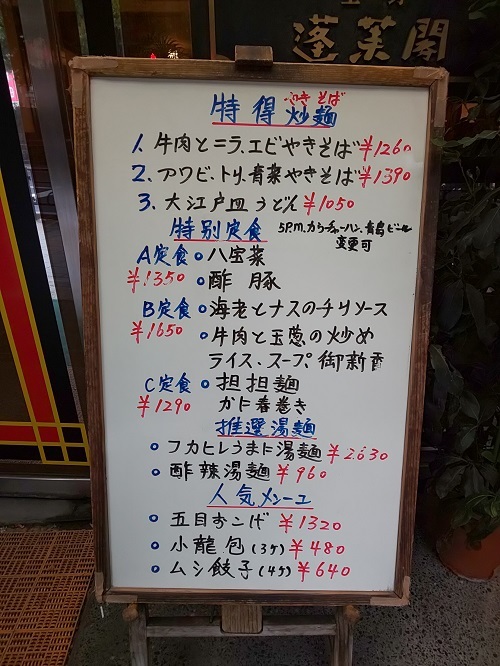 蓬莱閣
特得炒麺
やきそば
1. 牛肉とニラ、エビやきそば ¥1260
2. アワビ、トリ、青菜やきそば ¥1390
3. 大江戸皿うどん ¥1050
特別定食
5P.M.からチャーハン、青島ビール
変更可
A定食 ○ 八宝菜
¥1350 ○ 酢豚
B定食 ○ 海老とナスのチリソース
¥1650 ○ 牛肉と玉葱の炒め
ライス、スープ、御新香
C定食 ○ 担担麺
¥1290 カニ春巻き
推選湯麺
○ フカヒレうまに湯麺 ¥2630
○ 酢辣湯麺 ¥960
人気メニュー
○ 五目おこげ ¥1320
○ 小龍包(3ケ) ¥480
○ ムシ餃子(4ケ) ¥640